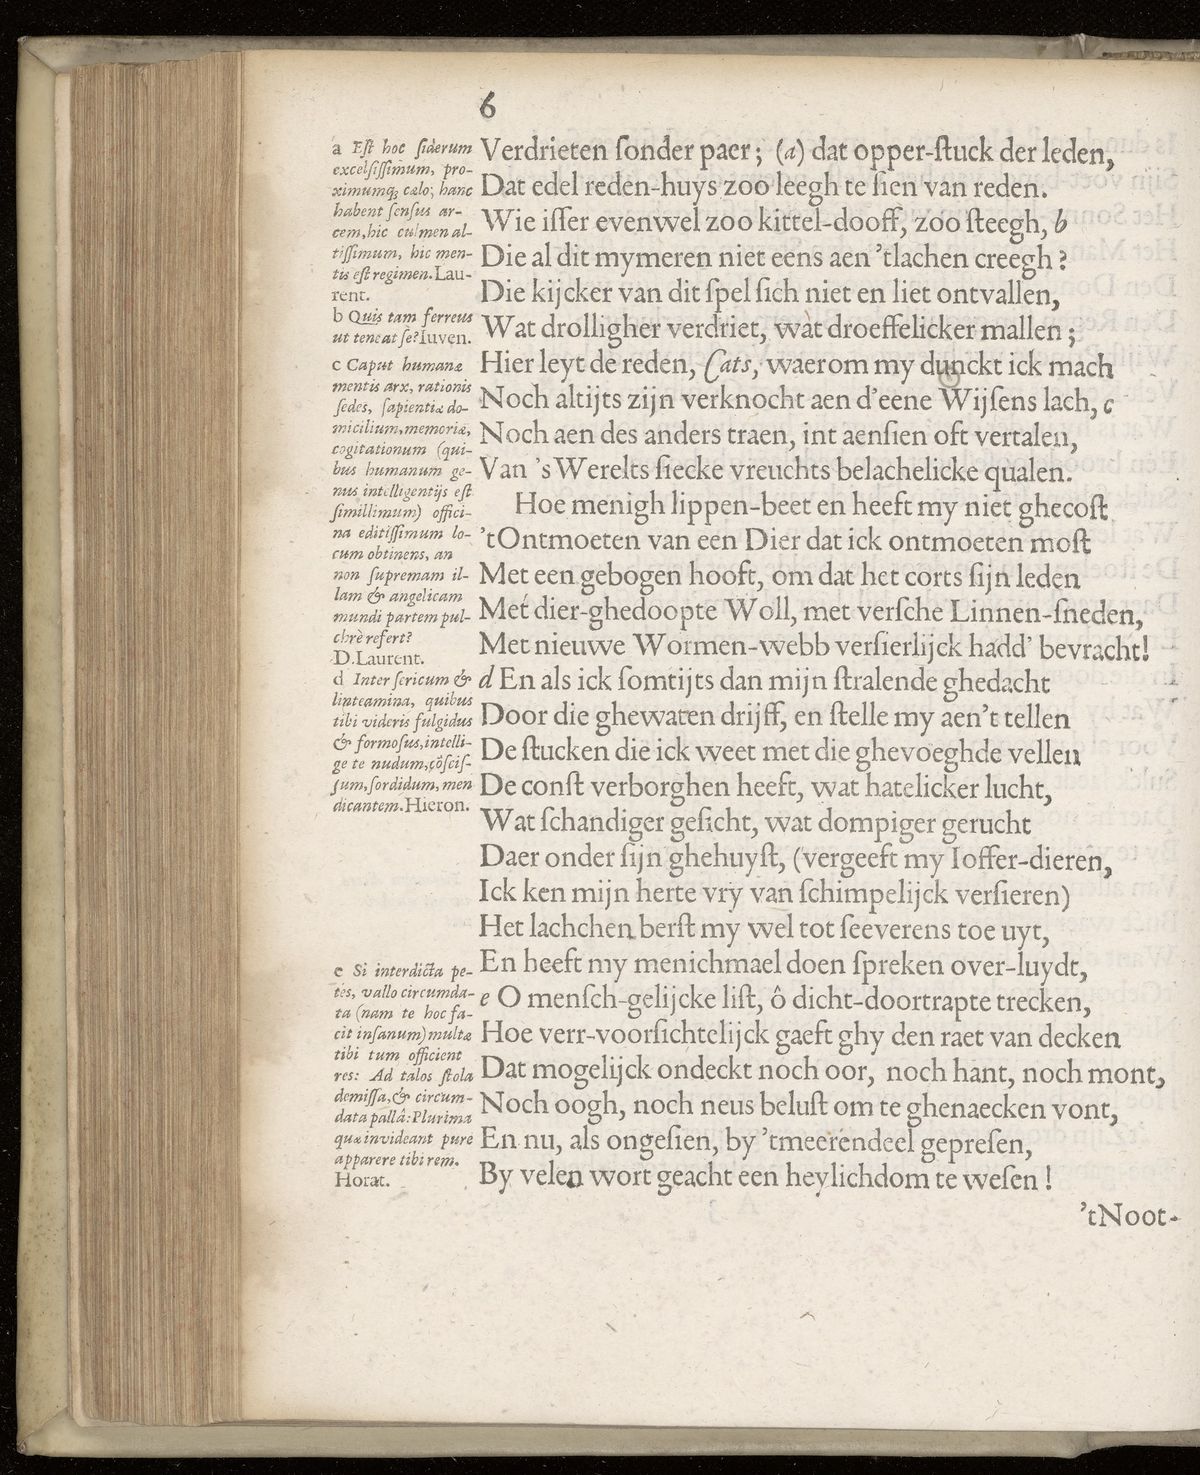 6
a Eſt hoc ſiderum
excelſiſſimum, pro-
ximumq; cælo; hanc
habent ſenſus ar-
cem, hic culmen al-
tiſſimum, hic men-
tis eſt regimen. Lau-
rent.
b Quis tam ferreus
ut teneat ſe? Iuven.
c Caput humanæ
mentis arx, rationis
ſedes, ſapientiæ do-
micilium, memoriæ,
cogitationum (qui-
bus humanum ge-
nus intelligentijs eſt
ſimillimum) offici-
na editiſſimum lo-
cum obtinens, an
non ſupremam il-
lam & angelicam
mundi partem pul-
chrè refert?
D. Laurent.
d Inter ſericum &
linteamina, quibus
tibi videris fulgidus
& formoſus, intelli-
ge te nudum, cõſciſ-
ſum, ſordidum, men
dicantem. Hieron.
e Si interdicta pe-
tes, vallo circumda-
ta (nam te hoc fa-
cit inſanum) multæ
tibi tum officient
res: Ad talos ſtola
demiſſa, & circum-
data pallâ: Plurima
quæ invideant pure
apparere tibi rem.
Horat.
Verdrieten ſonder paer; (a) dat opper-ſtuck der leden,
Dat edel reden-huys zoo leegh te ſien van reden.
Wie iſſer evenwel zoo kittel-dooff, zoo ſteegh, b
Die al dit mymeren niet eens aen 'tlachen creegh?
Die kijcker van dit ſpel ſich niet en liet ontvallen,
Wat drolligher verdriet, wat droeffelicker mallen;
Hier leyt de reden, Cats, waerom my dunckt ick mach
Noch altijts zijn verknocht aen d'eene Wijſens lach, c
Noch aen des anders traen, int aenſien oft vertalen,
Van 's Werelts ſiecke vreuchts belachelicke qualen.
Hoe menigh lippen-beet en heeft my niet ghecoſt
'tOntmoeten van een Dier dat ick ontmoeten moſt
Met een gebogen hooft, om dat het corts ſijn leden
Met dier-ghedoopte Woll, met verſche Linnen-ſneden,
Met nieuwe Wormen-webb verſierlijck hadd' bevracht!
d En als ick ſomtijts dan mijn ſtralende ghedacht
Door die ghewaten drijff, en ſtelle my aen't tellen
De ſtucken die ick weet met die ghevoeghde vellen
De conſt verborghen heeft, wat hatelicker lucht,
Wat ſchandiger geſicht, wat dompiger gerucht
Daer onder ſijn ghehuyſt, (vergeeft my Ioffer-dieren,
Ick ken mijn herte vry van ſchimpelijck verſieren)
Het lachchen berſt my wel tot ſeeverens toe uyt,
En heeft my menichmael doen ſpreken over-luydt,
e O menſch-gelijcke liſt, ô dicht-doortrapte trecken,
Hoe verr-voorſichtelijck gaeft ghy den raet van decken
Dat mogelijck ondeckt noch oor, noch hant, noch mont,
Noch oogh, noch neus beluſt om te ghenaecken vont,
En nu, als ongeſien, by 'tmeerendeel gepreſen,
By velen wort geacht een heylichdom te weſen!
'tNoot-